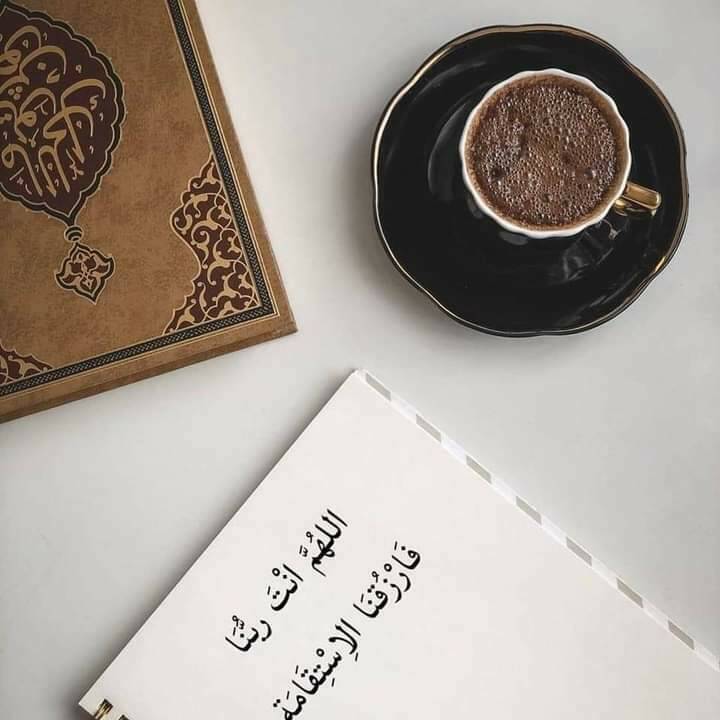 اللهُمَّ انْتَ ربُّنَا
فَارْزُقْنَا الاِسْتِقَامَة